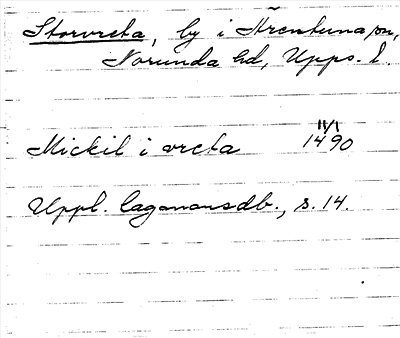 Storvreta, by i Ärentuna sn,
Norunda hd, Upps. l.
Mickil i vreta 11/1 1490
Uppl. lagmansdb., s. 14.